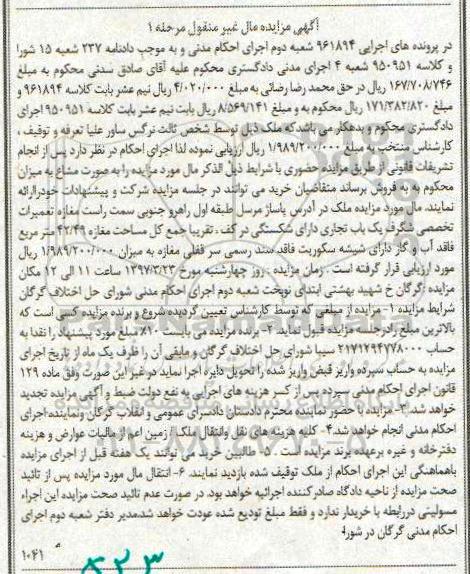 آگهی مزایده مال غیر منقول مرحله ۱
در پرونده های اجرایی ۹۶۱۸۹۴ شعبه دوم اجرای احکام مدنی و به موجب دادنامه ۲۳۷ شعبه ۱۵ شورا
و کلاسه ۹۵۰۹۵۱ شعبه ۴ اجرای مدنی دادگستری محکوم علیه آقای صادق سدنی محکوم به مبلغ
۱۶۷/۷۰۸/۷۴۶ ریال در حق محمد رضا رضائی به مبلغ ۴/۰۲۰/۰۰۰ ریال نیم عشر بابت کلاسه ۹۶۱۸۹۴ و
مبلغ ۱۷۱/۳۸۲/۸۲۰ ریال محکوم به و مبلغ ۸/۵۶۹/۱۴۱ ریال بابت نیم عشر بابت کلاسه ۹۵۰۹۵۱ اجرای
دادگستری محکوم و بدهکار می باشد که ملک ذیل توسط شخص ثالث نرگس ساور علیا تعرفه و توقیف ،
کارشناس منتخب به مبلغ ۱/۹۸۹/۲۰۰/۰۰۰ ریال ارزیابی نموده لذا اجرای احکام در نظر دارد پس از انجام
تشریفات قانونی از طریق مزایده حضوری با شرایط ذیل الذکر مال مورد مزایده را به صورت مشاع به میزان
محکوم به به فروش برساند متقاضیان خرید می توانند در جلسه مزایده شرکت و پیشنهادات خود را ارائه
نمایند. مال مورد مزایده ملک در آدرس پاساژ مرسل طبقه اول راهرو جنوبی سمت راست مغازه تعمیرات
تخصصی شگرف یک باب تجاری دارای شکستگی در کف ، تقریبا جمع کل مساحت مغازه ۴۲/۴۹ متر مربع
فاقد آب و گاز دارای شیشه سکوریت فاقد سند رسمی سر قفلی مغازه به میزان ۱/۹۸۹/۲۰۰/۰۰۰ ریال
مورد ارزیابی قرار گرفته است . زمان مزایده : روز چهارشنبه مورخ ۱۳۹۷/۳/۲۳ ساعت ۱۱ الی ۱۲ مکان
مزایده :گرگان خ شهید بهشتی ابتدای نوبخت شعبه دوم اجرای احکام مدنی شورای حل اختلاف گرگان
شرایط مزایده ۱-مزایده از مبلغی که توسط کارشناس تعیین گردیده شروع و برنده مزایده کسی است که
بالاترین مبلغ را در جلسه مزایده قبول نماید. ۲- برنده مزایده می بایست ۱۰٪ مبلغ مورد پیشنهاد را نقدا به
حساب ۲۱۷۱۲۹۴۷۷۸۰۰۰ سیبا شورای حل اختلاف گرگان و مابقی آن را ظرف یک ماه از تاریخ اجرای
مزایده به حساب سپرده واریز قبض واریز شده را تحویل دایره اجرا نماید در غیر این صورت وفق ماده ۱۲۹
قانون اجرای احکام مدنی سپرده پس از کسر هزینه های اجرایی به نفع دولت ضبط و آگهی مزایده تجدید
خواهد شد.۳- مزایده با حضور نماینده محترم دادستان دادسرای عمومی و انقلاب گرگان و نماینده اجرای
احکام مدنی انجام خواهد شد.۴- کلیه هزینه های نقل وانتقال ملک / زمین اعم از مالیات عوارض و هزینه
دفترخانه و غیره برعهده برند مزایده است . ۵- طالبین خرید می توانند یک هفته قبل از اجرای مزایده
باهماهنگی این اجرای احکام از ملک توقیف شده بازدید نمایند. ۶- انتقال مال مورد مزایده پس از تائید
صحت مزایده از ناحیه دادگاه صادرکننده اجرائیه خواهد بود. در صورت عدم تائید صحت مزایده این اجراء
مسولیتی دررابطه با خریدار ندارد و فقط مبلغ تودیع شده عودت خواهد شد.مدیر دفتر شعبه دوم اجرای
احکام مدنی گرگان در شورا
۱۰۴۱
۸۲۳